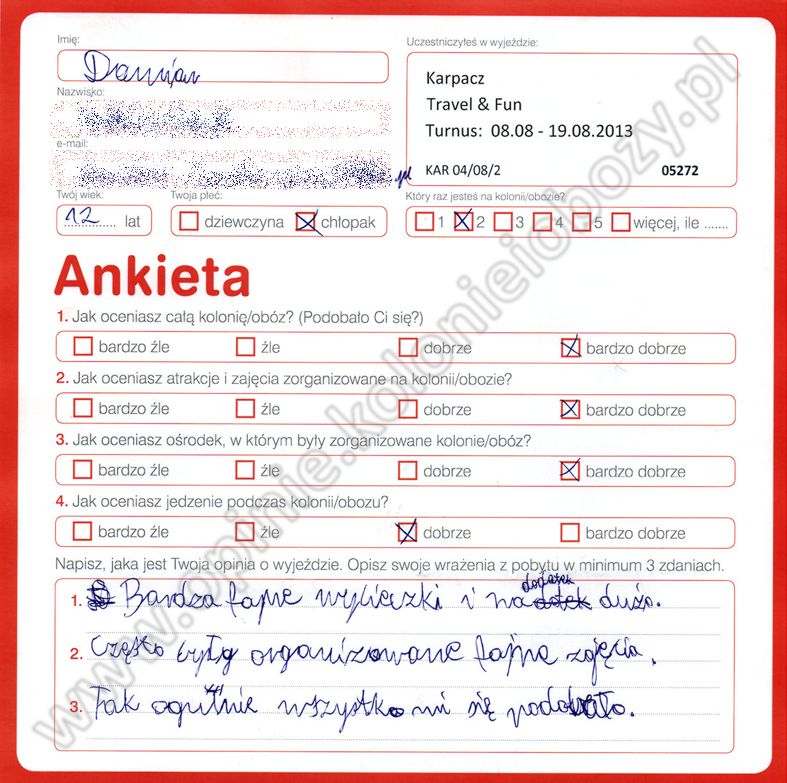 Imię:
Damian
Uczestniczyłeś w wyjeździe:
Karpacz
Travel & Fun
Turnus: 08.08 - 19.08.2013
KAR 04/08/2 05272
Nazwisko:
e-mail:
.pl
Twój wiek: Twoja płeć: Który raz jesteś na kolonii/obozie?
12 lat dziewczyna chłopak 1 2 3 4 5 więcej, ile .......
Ankieta
1. Jak oceniasz całą kolonię/obóz? (Podobało Ci się?)
bardzo źle źle dobrze bardzo dobrze
2. Jak oceniasz atrakcje i zajęcia zorganizowane na kolonii/obozie?
bardzo źle źle dobrze bardzo dobrze
3. Jak oceniasz ośrodek, w którym były zorganizowane kolonie/obóz?
bardzo źle źle dobrze bardzo dobrze
4. Jak oceniasz jedzenie podczas kolonii/obozu?
bardzo źle źle dobrze bardzo dobrze
Napisz, jaka jest Twoja opinia o wyjeździe. Opisz swoje wrażenia z pobytu w minimum 3 zdaniach.
dodatek
1. Bardzo fajne wycieczki i na dużo.
2. Często były organizowane fajne zajęcia.
3. Tak ogólnie wszystko mi się podobało.
www.opinie.kolonieiobozy.pl